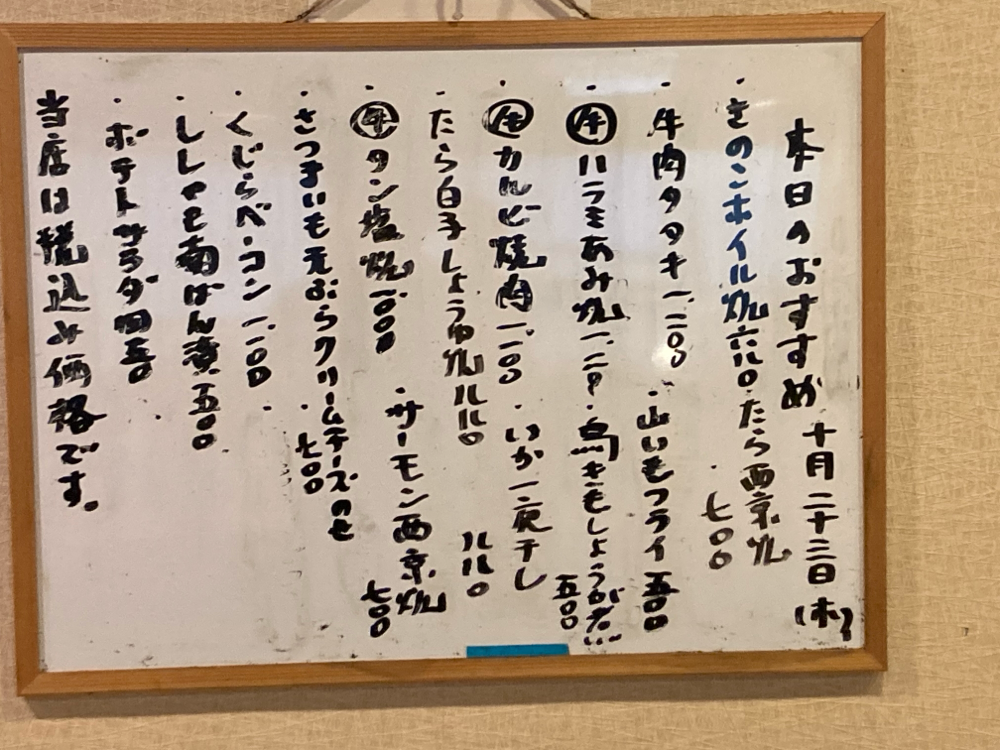 本日のおすすめ 十月二十三日(木)
・きのこホイル焼 六八〇 ・たら西京焼 七〇〇
・牛肉タタキ 一、二〇〇 ・山いもフライ 五五〇
・牛ハラミあみ焼 一、二〇〇 ・鳥きもしょうが煮 五〇〇
・牛カルビ焼肉 一、二〇〇 ・いか一夜干し 八八〇
・たら白子しょうゆ焼 八八〇
・牛タン塩焼 一、〇〇〇 ・サーモン西京焼 七〇〇
・さつまいも天ぷらクリームチーズのせ 七〇〇
・くじらベーコン 一、一〇〇
・ししゃも南ばん漬 五〇〇
・ポテトサラダ 四五〇
当店は税込み価格です。